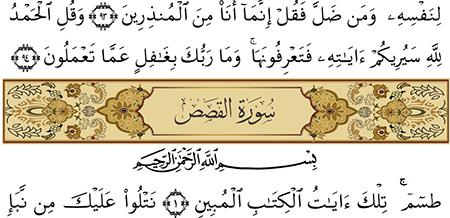 لِنَفْسِهِۦ وَمَن ضَلَّ فَقُلْ إِنَّمَآ أَنَا۠ مِنَ ٱلْمُنذِرِينَ ۝٩٢ وَقُلِ ٱلْحَمْدُ
لِلَّهِ سَيُرِيكُمْ ءَايَٰتِهِۦ فَتَعْرِفُونَهَا ۚ وَمَا رَبُّكَ بِغَٰفِلٍ عَمَّا تَعْمَلُونَ ۝٩٣
سُورَةُ القَصَصِ
بِسْمِ ٱللَّهِ ٱلرَّحْمَٰنِ ٱلرَّحِيمِ
طسٓمٓ ۚ تِلْكَ ءَايَٰتُ ٱلْكِتَٰبِ ٱلْمُبِينِ ۝١ نَتْلُوا۟ عَلَيْكَ مِن نَّبَإِ